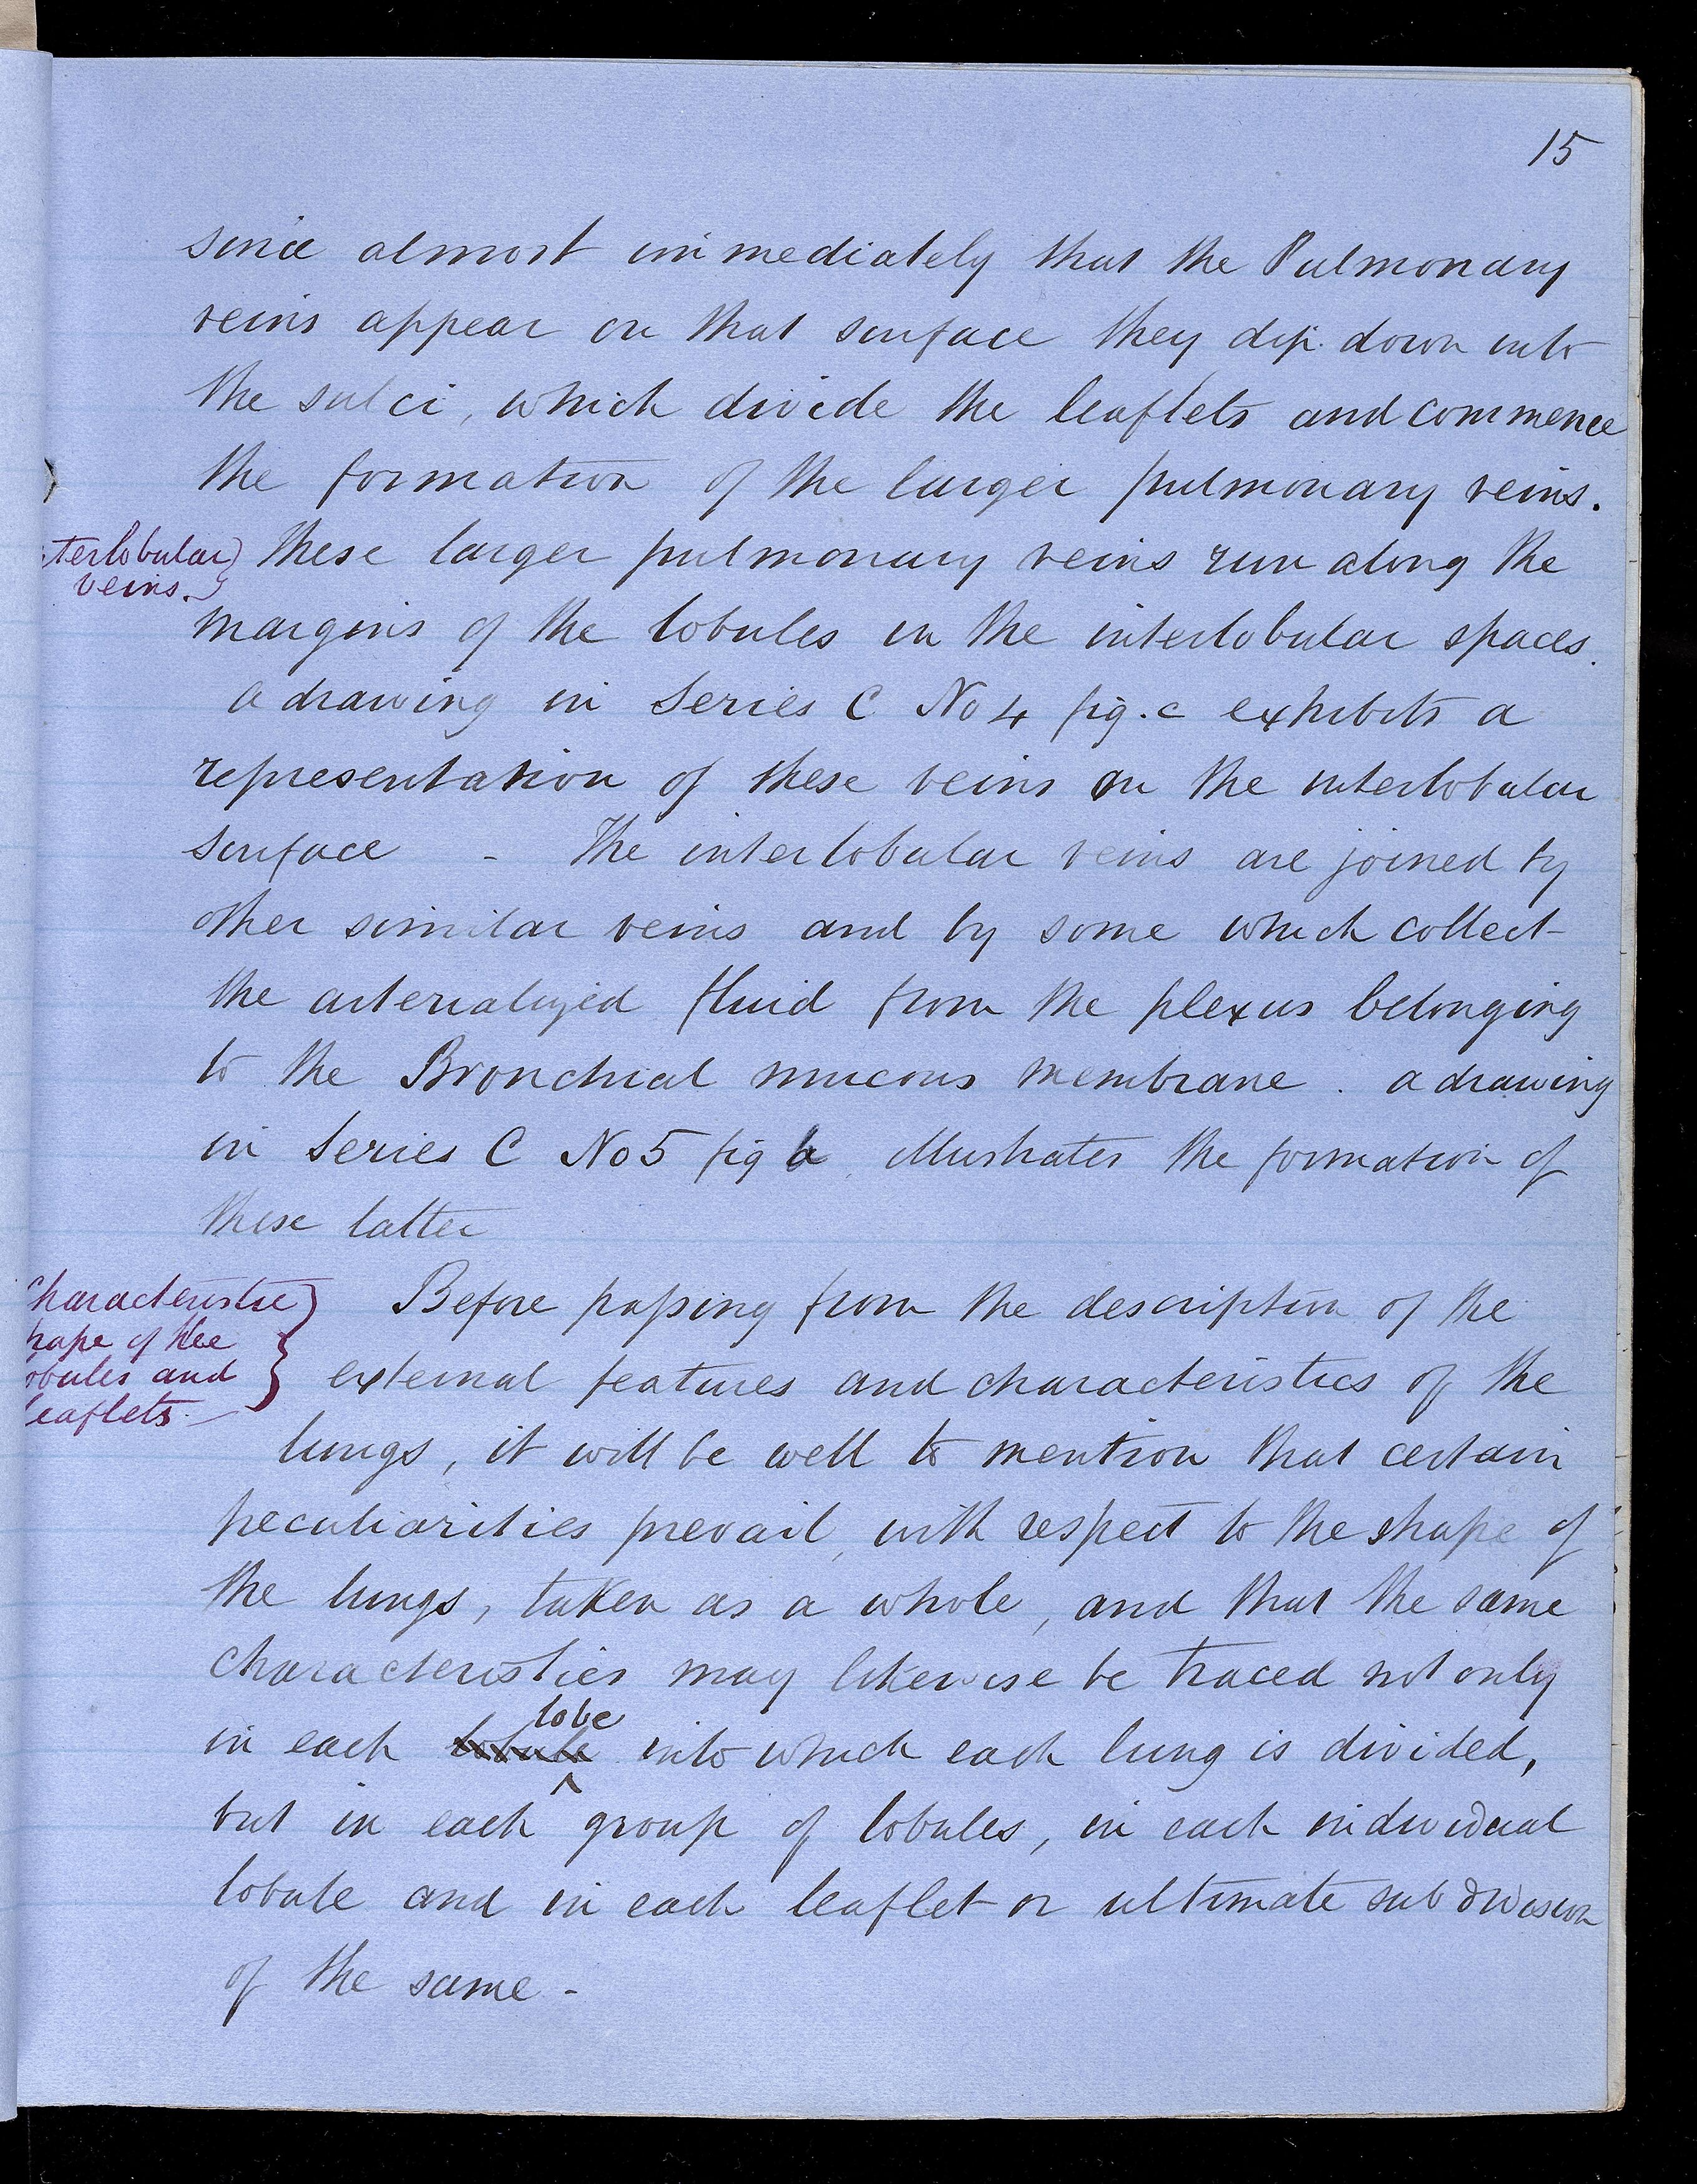 15
since almost immediately that the Pulmonary
veins appear on that surface they dip down into
the sulci, which divide the leaflets and commence
the formation of the larger pulmonary veins.
terlobular
veins.
These larger pulmonary veins run along the
margins of the lobules in the interlobular spaces.
a drawing in Series C No 4 fig. c exhibits a
representation of these veins on the interlobular
surface - The interlobular veins are joined by
other similar veins and by some which collect
the arterialized fluid from the plexus belonging
to the Bronchial mucous membrane. a drawing
in Series C No 5 fig illustrates the formation of
these latter
Characteristic
hape of the
obules and
leaflets.
Before passing from the description of the
external features and characteristics of the
lungs, it will be well to mention that certain
peculiarities prevail, with respect to the shape of
the lungs, taken as a whole, and that the same
characteristics may likewise be traced not only
in each lobule lobe into which each lung is divided,
but in each group of lobules, in each individual
lobule and in each leaflet or ultimate subdivision
of the same -